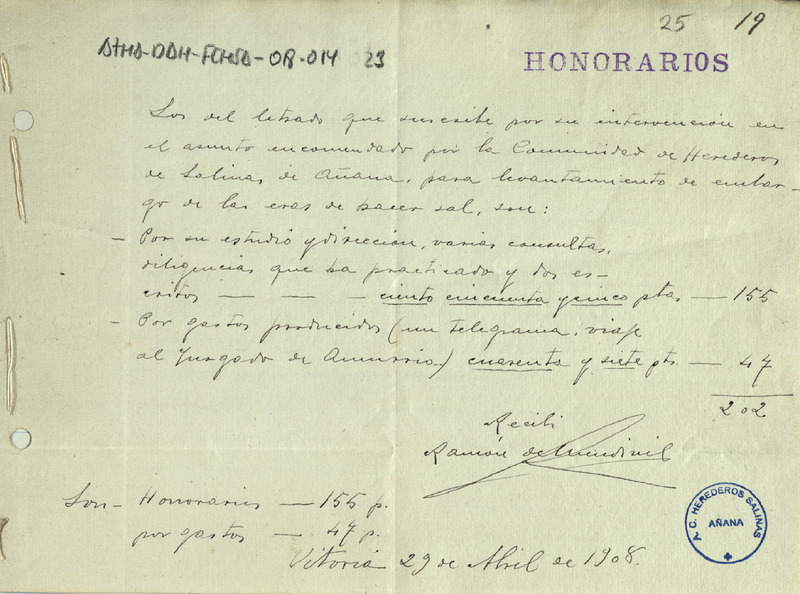 25 19
ATHA-DAH-FCHSA-OR-014 23
HONORARIOS
Los del letrado que suscribe por su intervención en
el asunto encomendado por la Comunidad de Herederos
de Salinas de Añana, para levantamiento de embar-
go de las eras de hacer sal, son:
- Por su estudio y direccion, varias consultas,
diligencias que ha practicado y dos es-
critos — — — ciento cincuenta y cinco ptas — 155
- Por gastos producidos (un telegrama, viaje
al Juzgado de Amurrio) cuarenta y siete pts. — 47
202
Recibi
Ramón de
Son - Honorarios — 155 p.
por gastos — 47 p.
Vitoria 29 de Abril de 1908.
C. HEREDEROS SALINAS
AÑANA